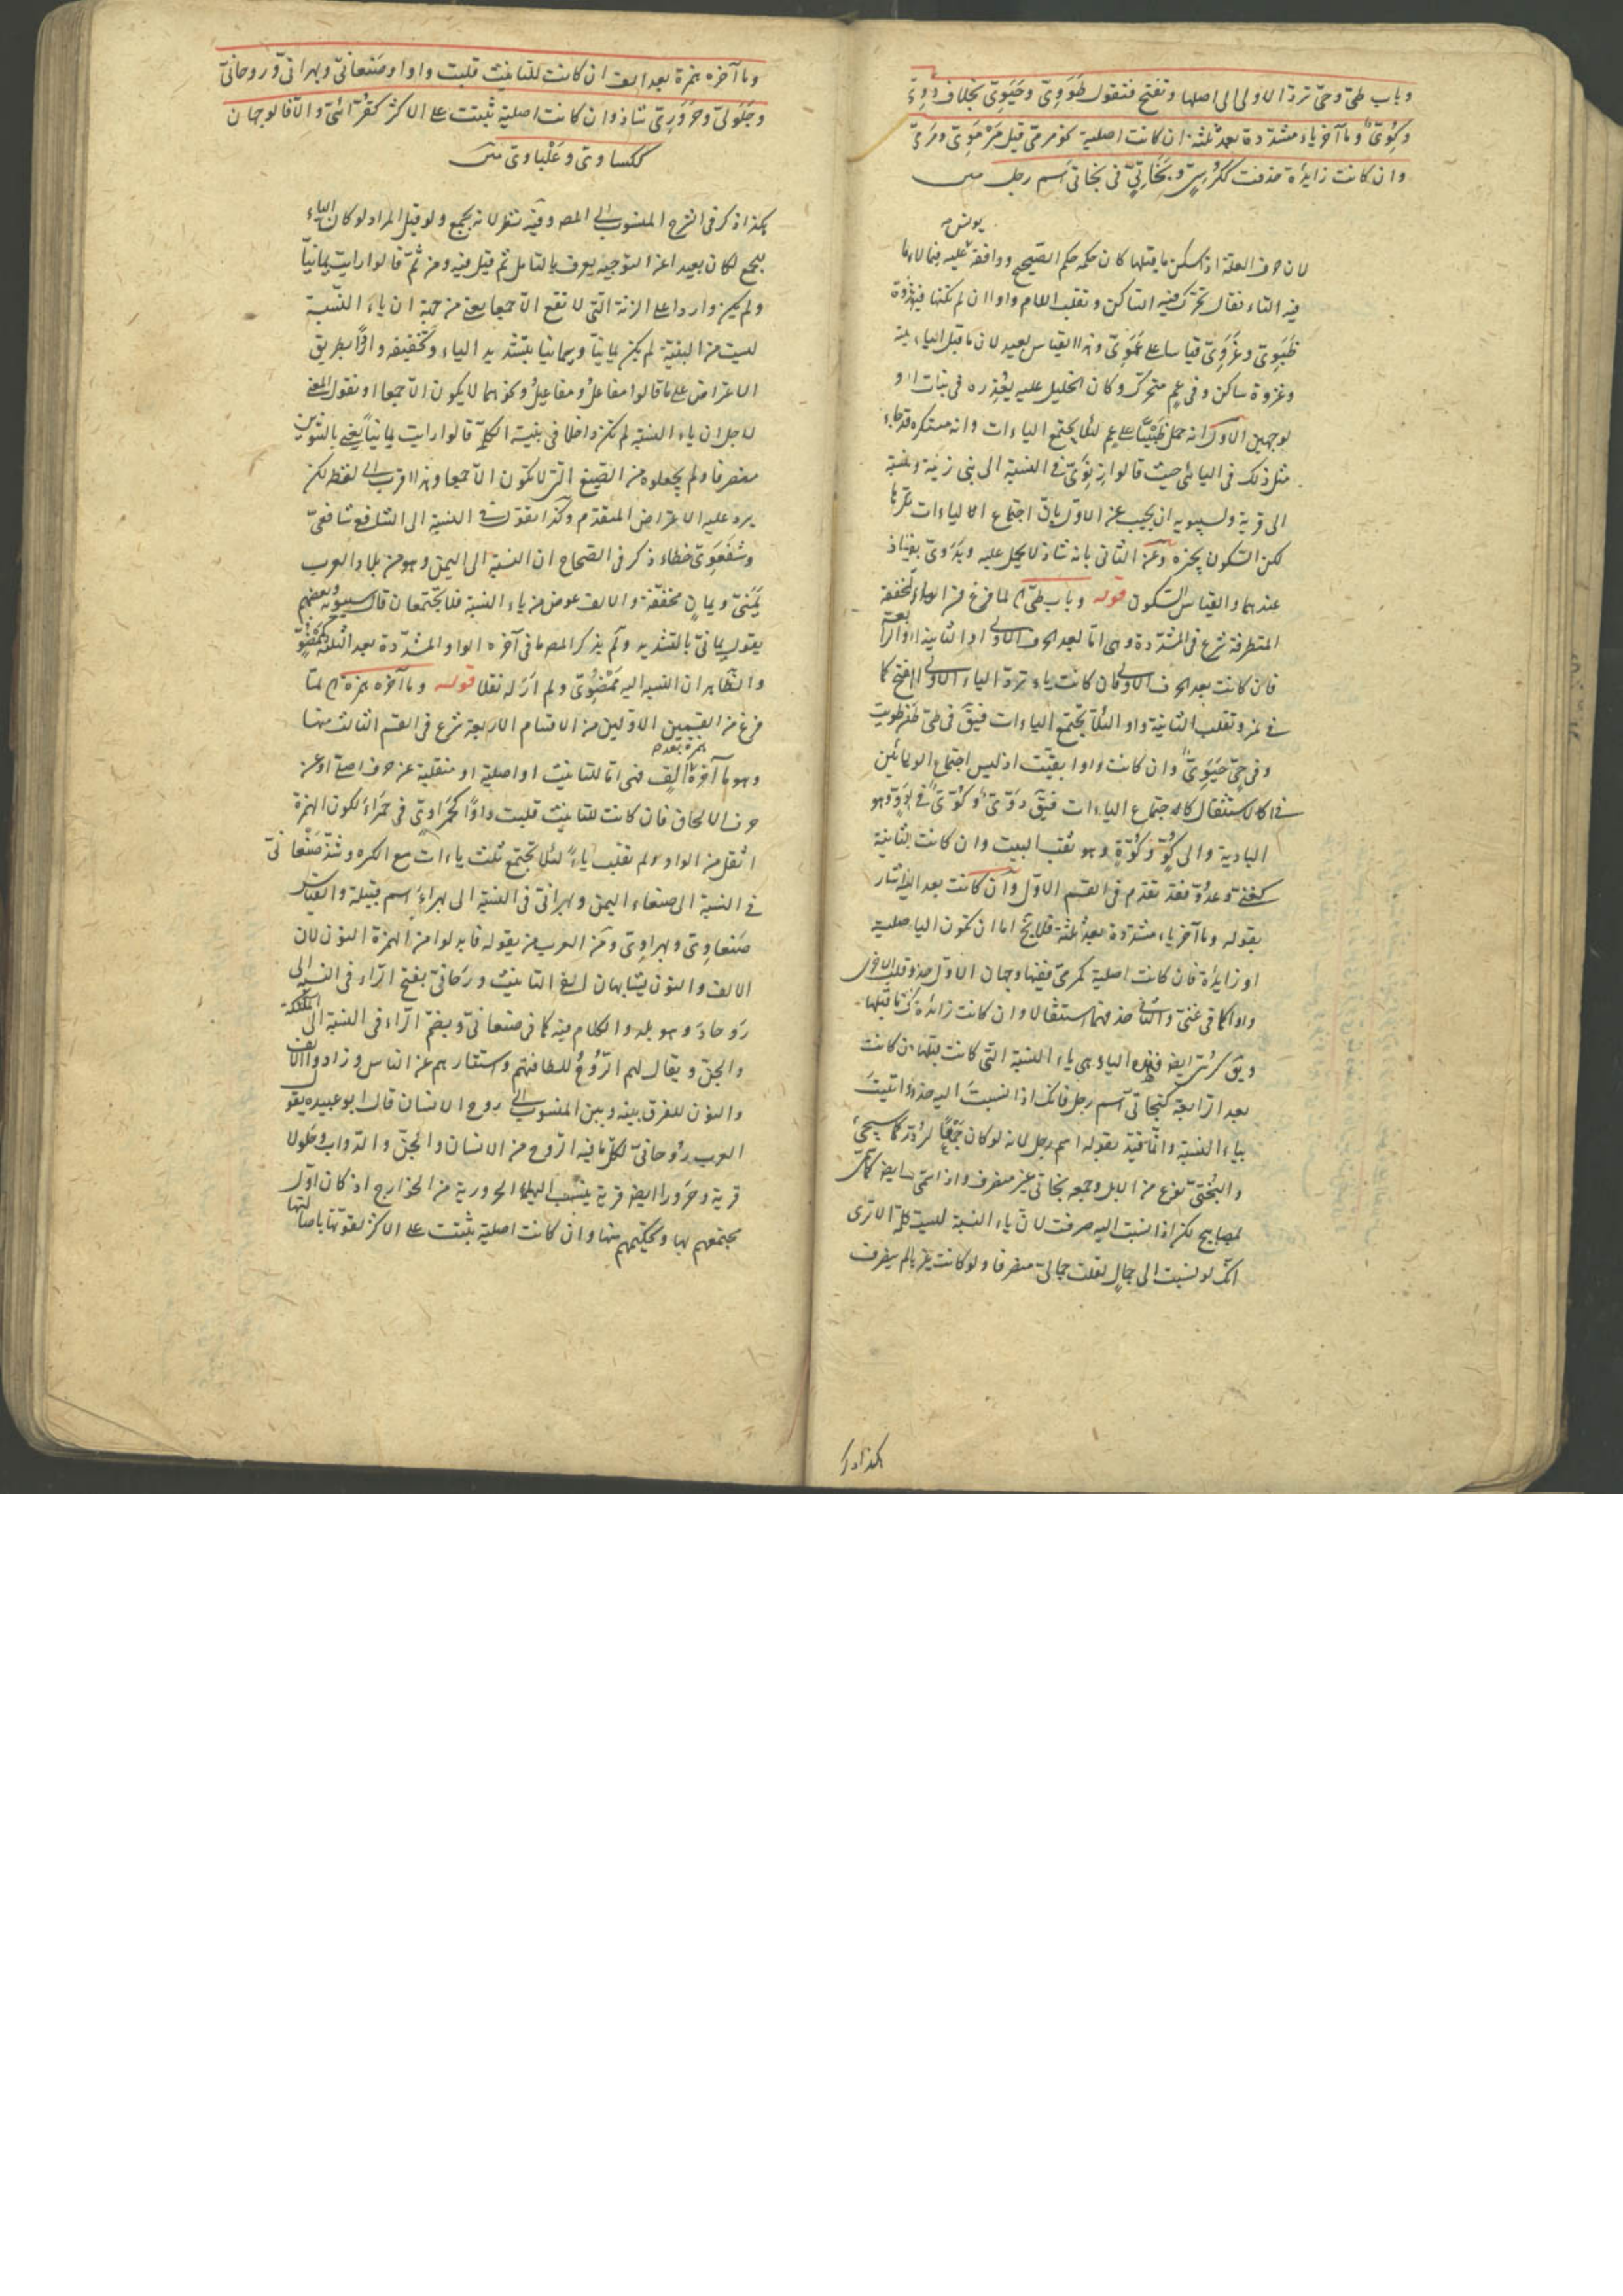 وباب طيّ وحيّ تردّ الاولى الى اصلها وتفتح فتقول طَوَوِيّ وحَيَوِيّ بخلاف دَوّيّ
وكوّيّ وما آخره ياء مشدّدة بعد ثلثة ان كانت اصلية نحو مرميّ قيل مَرْمَوِيّ ومَرْمِيّ
وان كانت زايدة حذفت ككُرْسِيّ وبَخَاتِيّ في بخاتي اسم رجل
يونس
لان حرف العلة اذا سكن ما قبلها كان حكمه حكم الصحيح ووافقه عليه فيما لا
فيه التاء فقال تحرّك فيه الساكن وتقلب اللام واوا ان لم تكنها
ظَبَوِيّ وغَزَوِيّ قياسا على عَمَوِيّ وهذا القياس بعيد لان ما قبل الياء
وغزوة ساكن وفي عم متحرّك وكان الخليل عليه يعذره في بنات
لوجهين الاول انه حمل على عم لئلا يجتمع الياءات وانه مستكره قد جاء
مثل ذلك في اليائي حيث قالوا زنوي في النسبة الى بني زنية ونسبة
الى قرية ولسيبويه ان يجيب عن الاول بان اجتماع الياءات
لكن السكون يجبره وعن الثاني بانه شاذ لا يحمل عليه وبَدَوِيّ شاذ
عندهما والقياس السكون قوله وباب طيّ الخ لما فرغ من الياء المخففة
المتطرفة شرع في المشدّدة وهي امّا بعد الحرف الاولى او الثانية او
فان كانت بعد الحرف الاولى فان كانت ياء تردّ الياء الاولى الفتح كما
في نمر وتقلب الثانية واوا لئلا تجتمع الياءات فيق في طيّ من طويت
وفي حيّ حَيَوِيّ وان كانت واوا بقيت اذ ليس اجتماع الواو
في الاستثقال كاجتماع الياءات فيق دوّيّ وكوّيّ في دوّ وهو
البادية والى كوّ وكوّة وهو ثقب البيت وان كانت الثانية
كغنيّ وعدوّ فقد تقدم في القسم الاوّل وان كانت بعد اشار
بقوله وما آخره ياء مشدّدة بعد ثلثة فلا يخ اما ان تكون الياء اصلية
او زايدة فان كانت اصلية كمرميّ ففيها وجهان الاوّل حذف
واوا كما في غنيّ والثاني حذفهما استثقالا وان كانت زائدة ما قبلها
ويق كرسيّ ايض فهذه الياء هي ياء النسبة التي كانت قبلها وان كانت
بعد الرابعة كبخاتي اسم رجل فانك اذا نسبت اليه حذفوا اتيت
بياء النسبة وانما قيّد بقوله اسم رجل لانه لو كان جَمْعًا لردّ كما سيجيئ
والبُختيّ نوع من الابل وجمعه بخاتي غير منصرف واذا سمّي
لمصابيح لكن اذا نسبت اليه صرفت لان ياء النسبة ليست الا ترى
انك لو نسبت الى جمال لقلت جماليّ منصرفا ولو كانت لم يصرف
هكذا ذكر
وما آخره همزة بعد الف ان كانت للتانيث قلبت واوا وصنعانيّ وبهرانيّ وروحانيّ
وجَلَوليّ وحَرَورِيّ شاذ وان كانت اصلية ثبتت على الاكثر كقُرّائيّ والا فالوجهان
ككساويّ وعَلْباويّ
هكذا ذكر في الشرح المنسوب الى المص وفيه نظر لانه يجمع ولو قيل المراد لو كان الياء
بجمع لكان بعيدا عن التوجيه يعرف بالتامل ثم قيل فيه ومن ثمّ قالوا رايت يمانيّا
ولم يكن واردا على الزنة التي لا تقع الا جمعا يعني من جهة ان ياء النسبة
ليست من البنية لم يكن يمانيّا بتشديد الياء وتخفيفه واردا بطريق
الاعتراض على ما قالوا مفاعل ومفاعيل ونحوهما لا يكون الا جمعا او نقول المعنى
لاجل ان ياء النسبة لم تكن داخلا في بنية الكلمة قالوا رايت يمانيّا يعني بالتنوين
منصرفا ولم يجعلوه من الصيغ التي لا تكون الا جمعا وهذا اقرب الى لفظه لكن
يرد عليه الاعتراض المتقدم وكذا تقول في النسبة الى الشافع شافعيّ
وشَفعَوِيّ خطاء ذكر في الصحاح ان النسبة الى اليمن وهو من بلاد العرب
يَمَنيّ ويمانٍ مخففة والالف عوض من ياء النسبة فلا يجتمعان قال سيبويه وبعضهم
يقول يمانيّ بالتشديد ولم يذكر المص ما في آخره الواو المشدّدة بعد الثلثة
والظاهر ان النسبة اليه مَغْزُوِيّ ولم ار له نقلا قوله وما آخره همزة الخ لمّا
فرغ من القسمين الاوّلين من الاقسام الاربعة شرع في القسم الثالث منها
وهو ما آخره همزة بعد الف فهي امّا للتانيث او اصلية او منقلبة عن حرف اصلي او عن
حرف الالحاق فان كانت للتانيث قلبت واوًا كحَمْراويّ في حَمْراءَ لكون الهمزة
اثقل من الواو ولم تقلب ياءً لئلا تجتمع ثلث ياءات مع الكسرة وشذّ صَنْعانيّ
في النسبة الى صنعاء اليمن وبهرانيّ في النسبة الى بهراء اسم قبيلة والقياس
صَنعاوِيّ وبهراوِيّ ومن العرب من يقوله فابدلوا من الهمزة النون لان
الالف والنون يشابهان الفي التانيث ورَحَانيّ بفتح الراء في النسبة الى
رَوحاءَ وهو بلد والكلام فيه كما في صنعانيّ وبضمّ الراء في النسبة الى الملئكة
والجنّ ويقال لهم الرُّوُح للطافتهم واستتارهم عن الناس وزادوا الالف
والنون للفرق بينه وبين المنسوب الى روح الانسان قال ابو عبيدة يقول
العرب رُوحانيّ لكلّ ما فيه الروح من الانسان والجنّ والدواب وجَلولا
قرية وحَرَورا ايض قرية ينسب اليها الحرورية من الخوارج اذ كان اوّل
مجتمعهم بها وتحكيمهم منها وان كانت اصلية ثبتت على الاكثر لقوّتها باصالتها